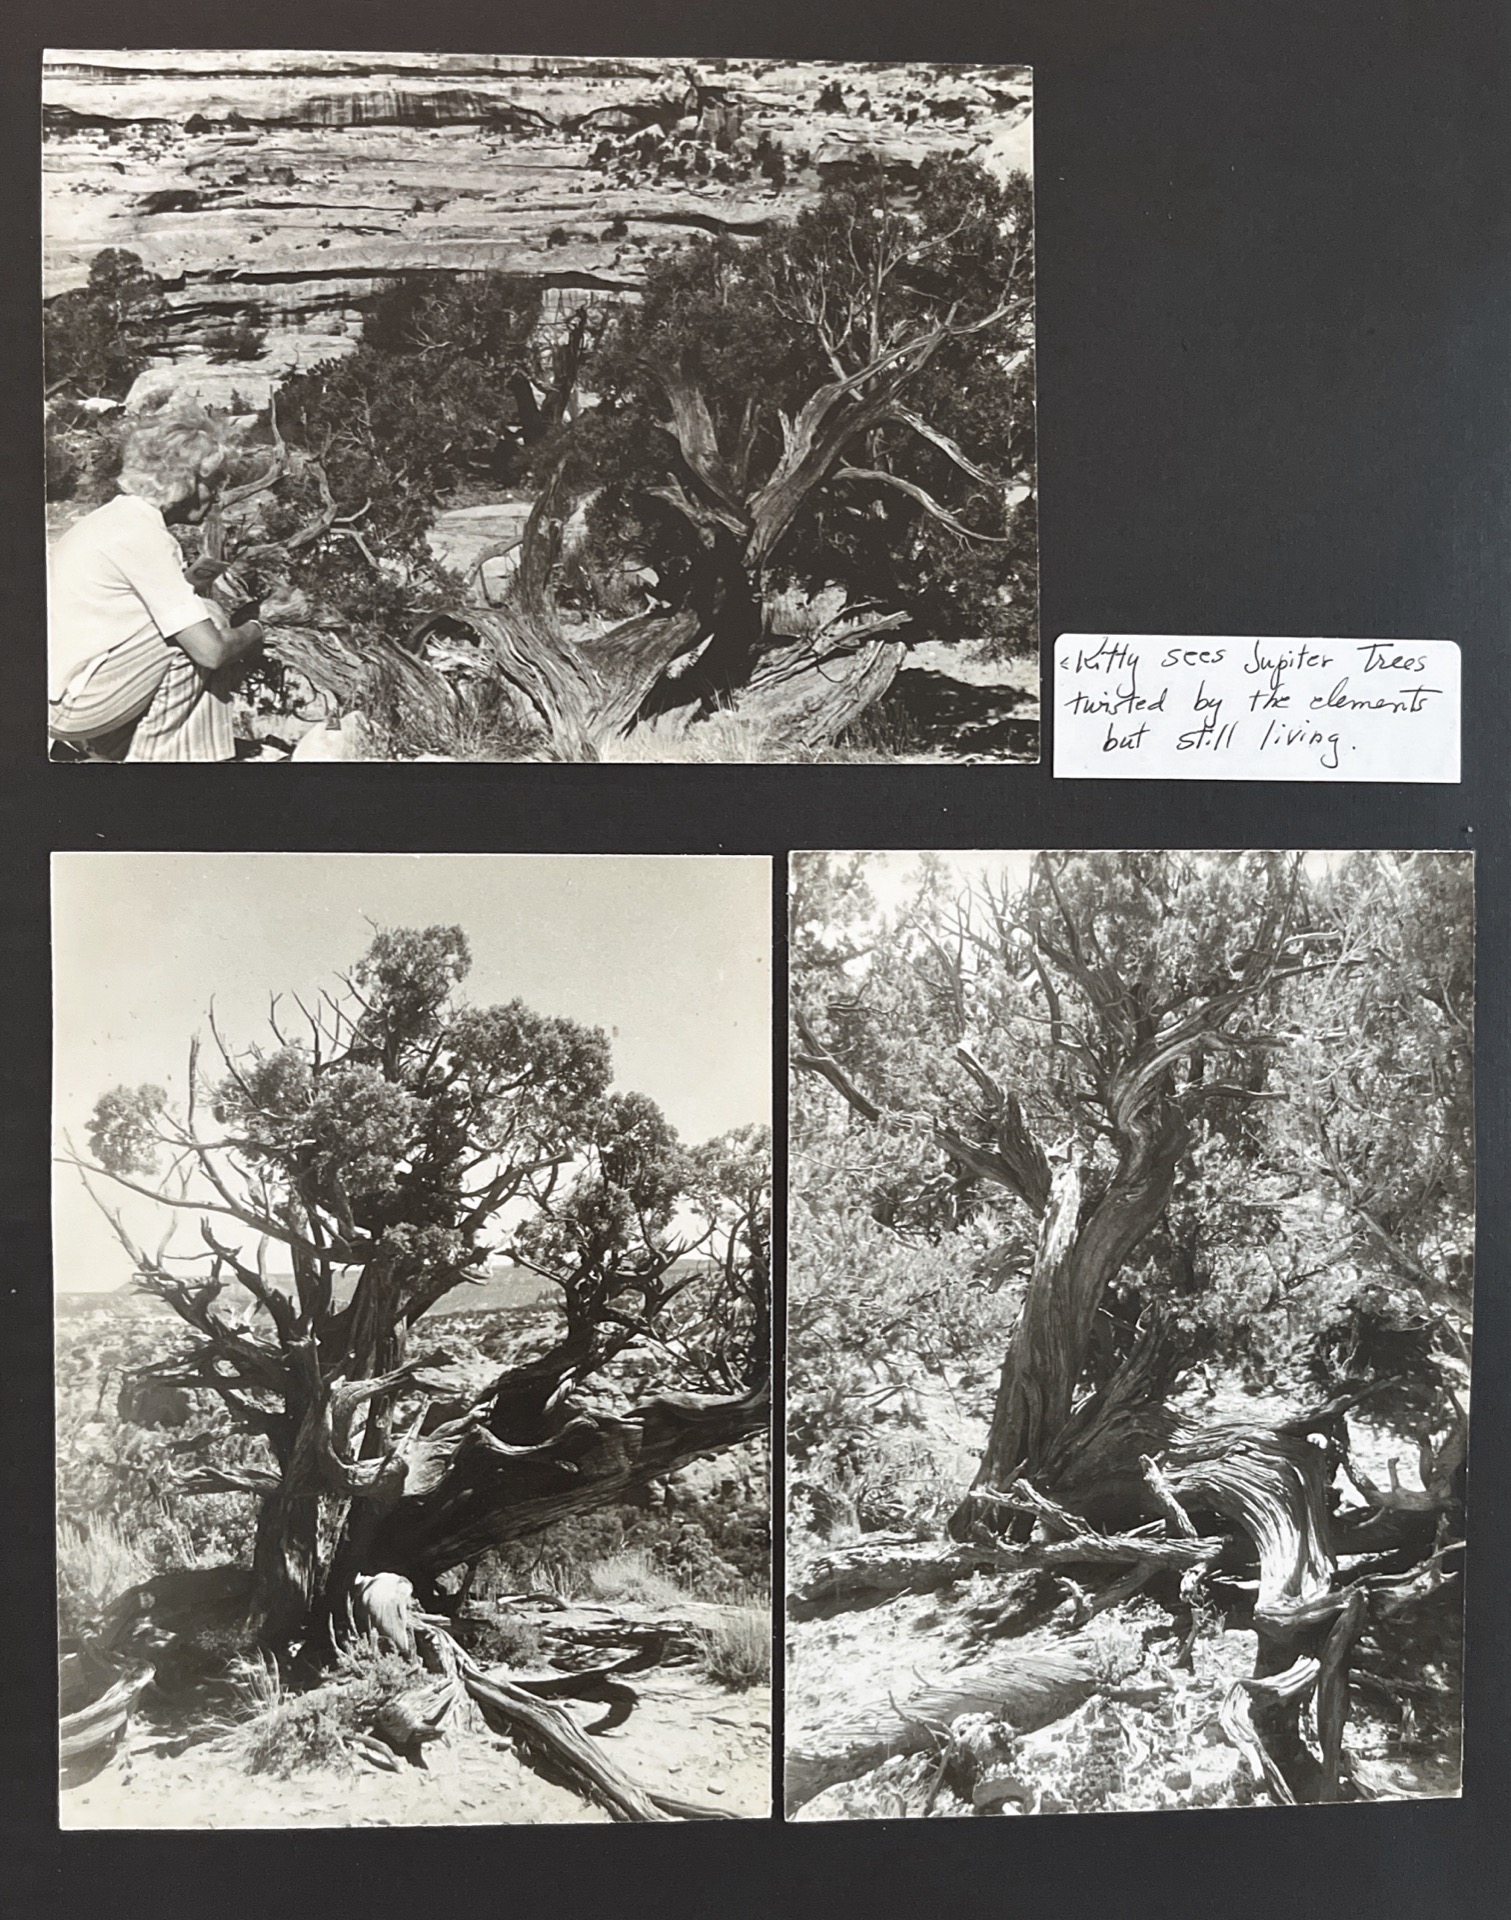 <Kitty sees Jupiter Trees
twisted by the elements
but still living.